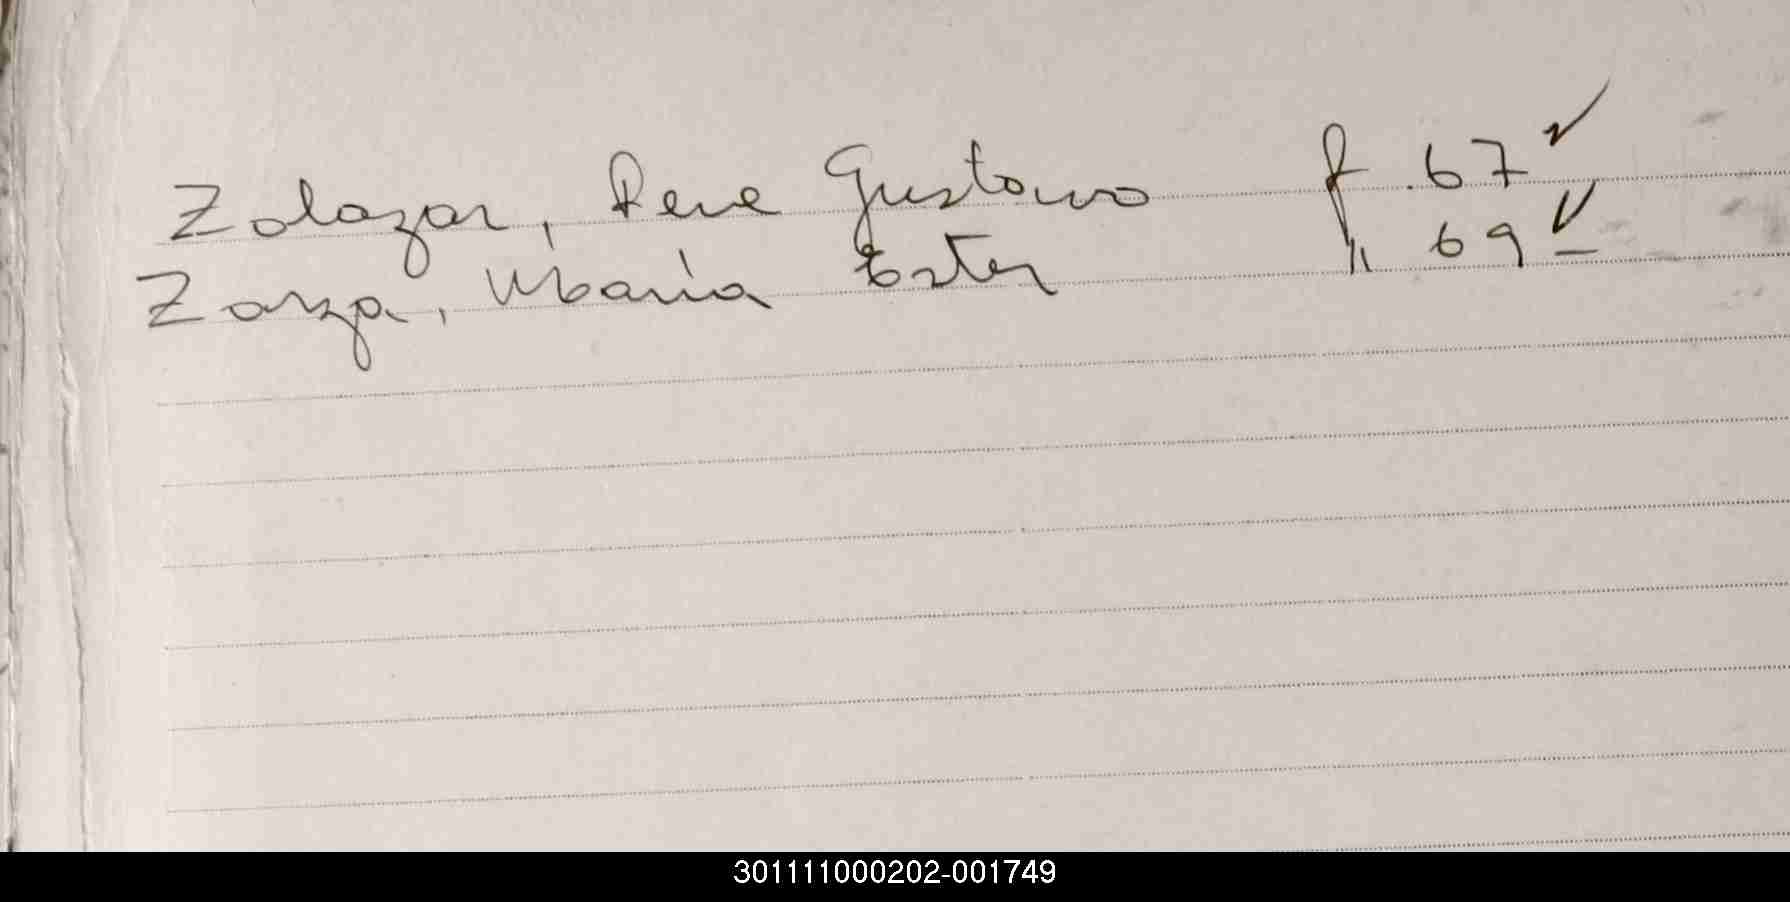 Zalazar, Rene Gustavo f. 67 ✓
Zarza, María Ester " 69 ✓
301111000202-001749